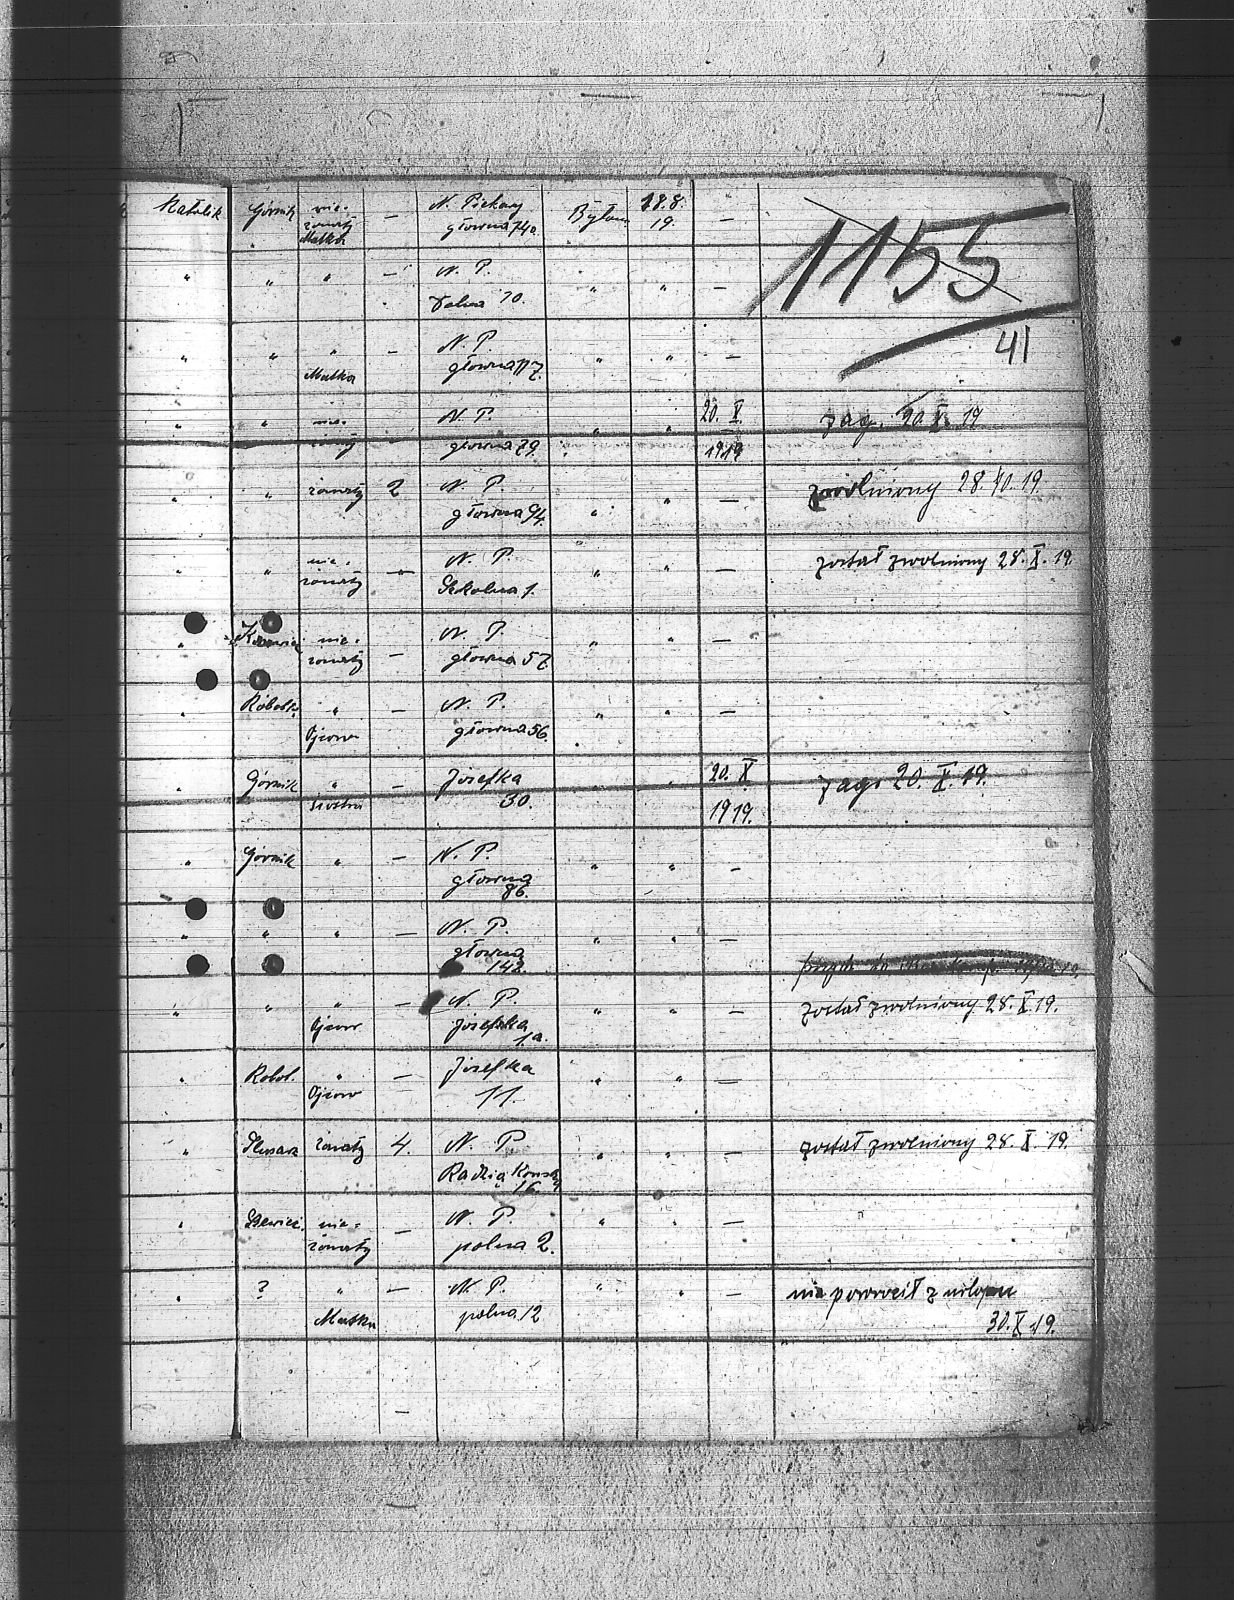 Katolik Górnik nie- — N. Piekary Bytom 18.8. —
żonaty główna 74a. 19.
Matka
1155
" " " — N. P. " " —
Dolna 70.
41
" " " — N. P " " —
Matka główna 117.
" " nie- N. P. " " 20. X. zag. 20. X. 19.
główna 79. 1919
" " żonaty 2 N. P. " " — zwolniony 28.10.19.
główna 94.
" " nie- — N. P. " " — został zwolniony 28. X. 19.
żonaty Szkolna 1.
" nie- — N. P. " " —
żonaty główna 57.
" Robotn. " — N. P. " " —
Ojciec główna 56.
" Górnik " — Józefka " " 20. X zag. 20. X. 19.
siostra 30. 1919.
" Górnik " — N. P. " " —
główna
86.
" " " — N. P. " " —
główna
148.
" " " — N. P. " " — został zwolniony 28. X. 19.
Ojciec Józefka
1a.
" Robot. " — Józefka " " —
Ojciec 11.
" Ślusarz żonaty 4. N. P. " " — został zwolniony 28. X. 19.
Radziąkowska
16.
" Szewiec. nie- — N. P. " " —
żonaty polna 2.
" ? " — N. P. " " — nie powrócił z urlopu
Matka polna 12 30. X. 19.
—